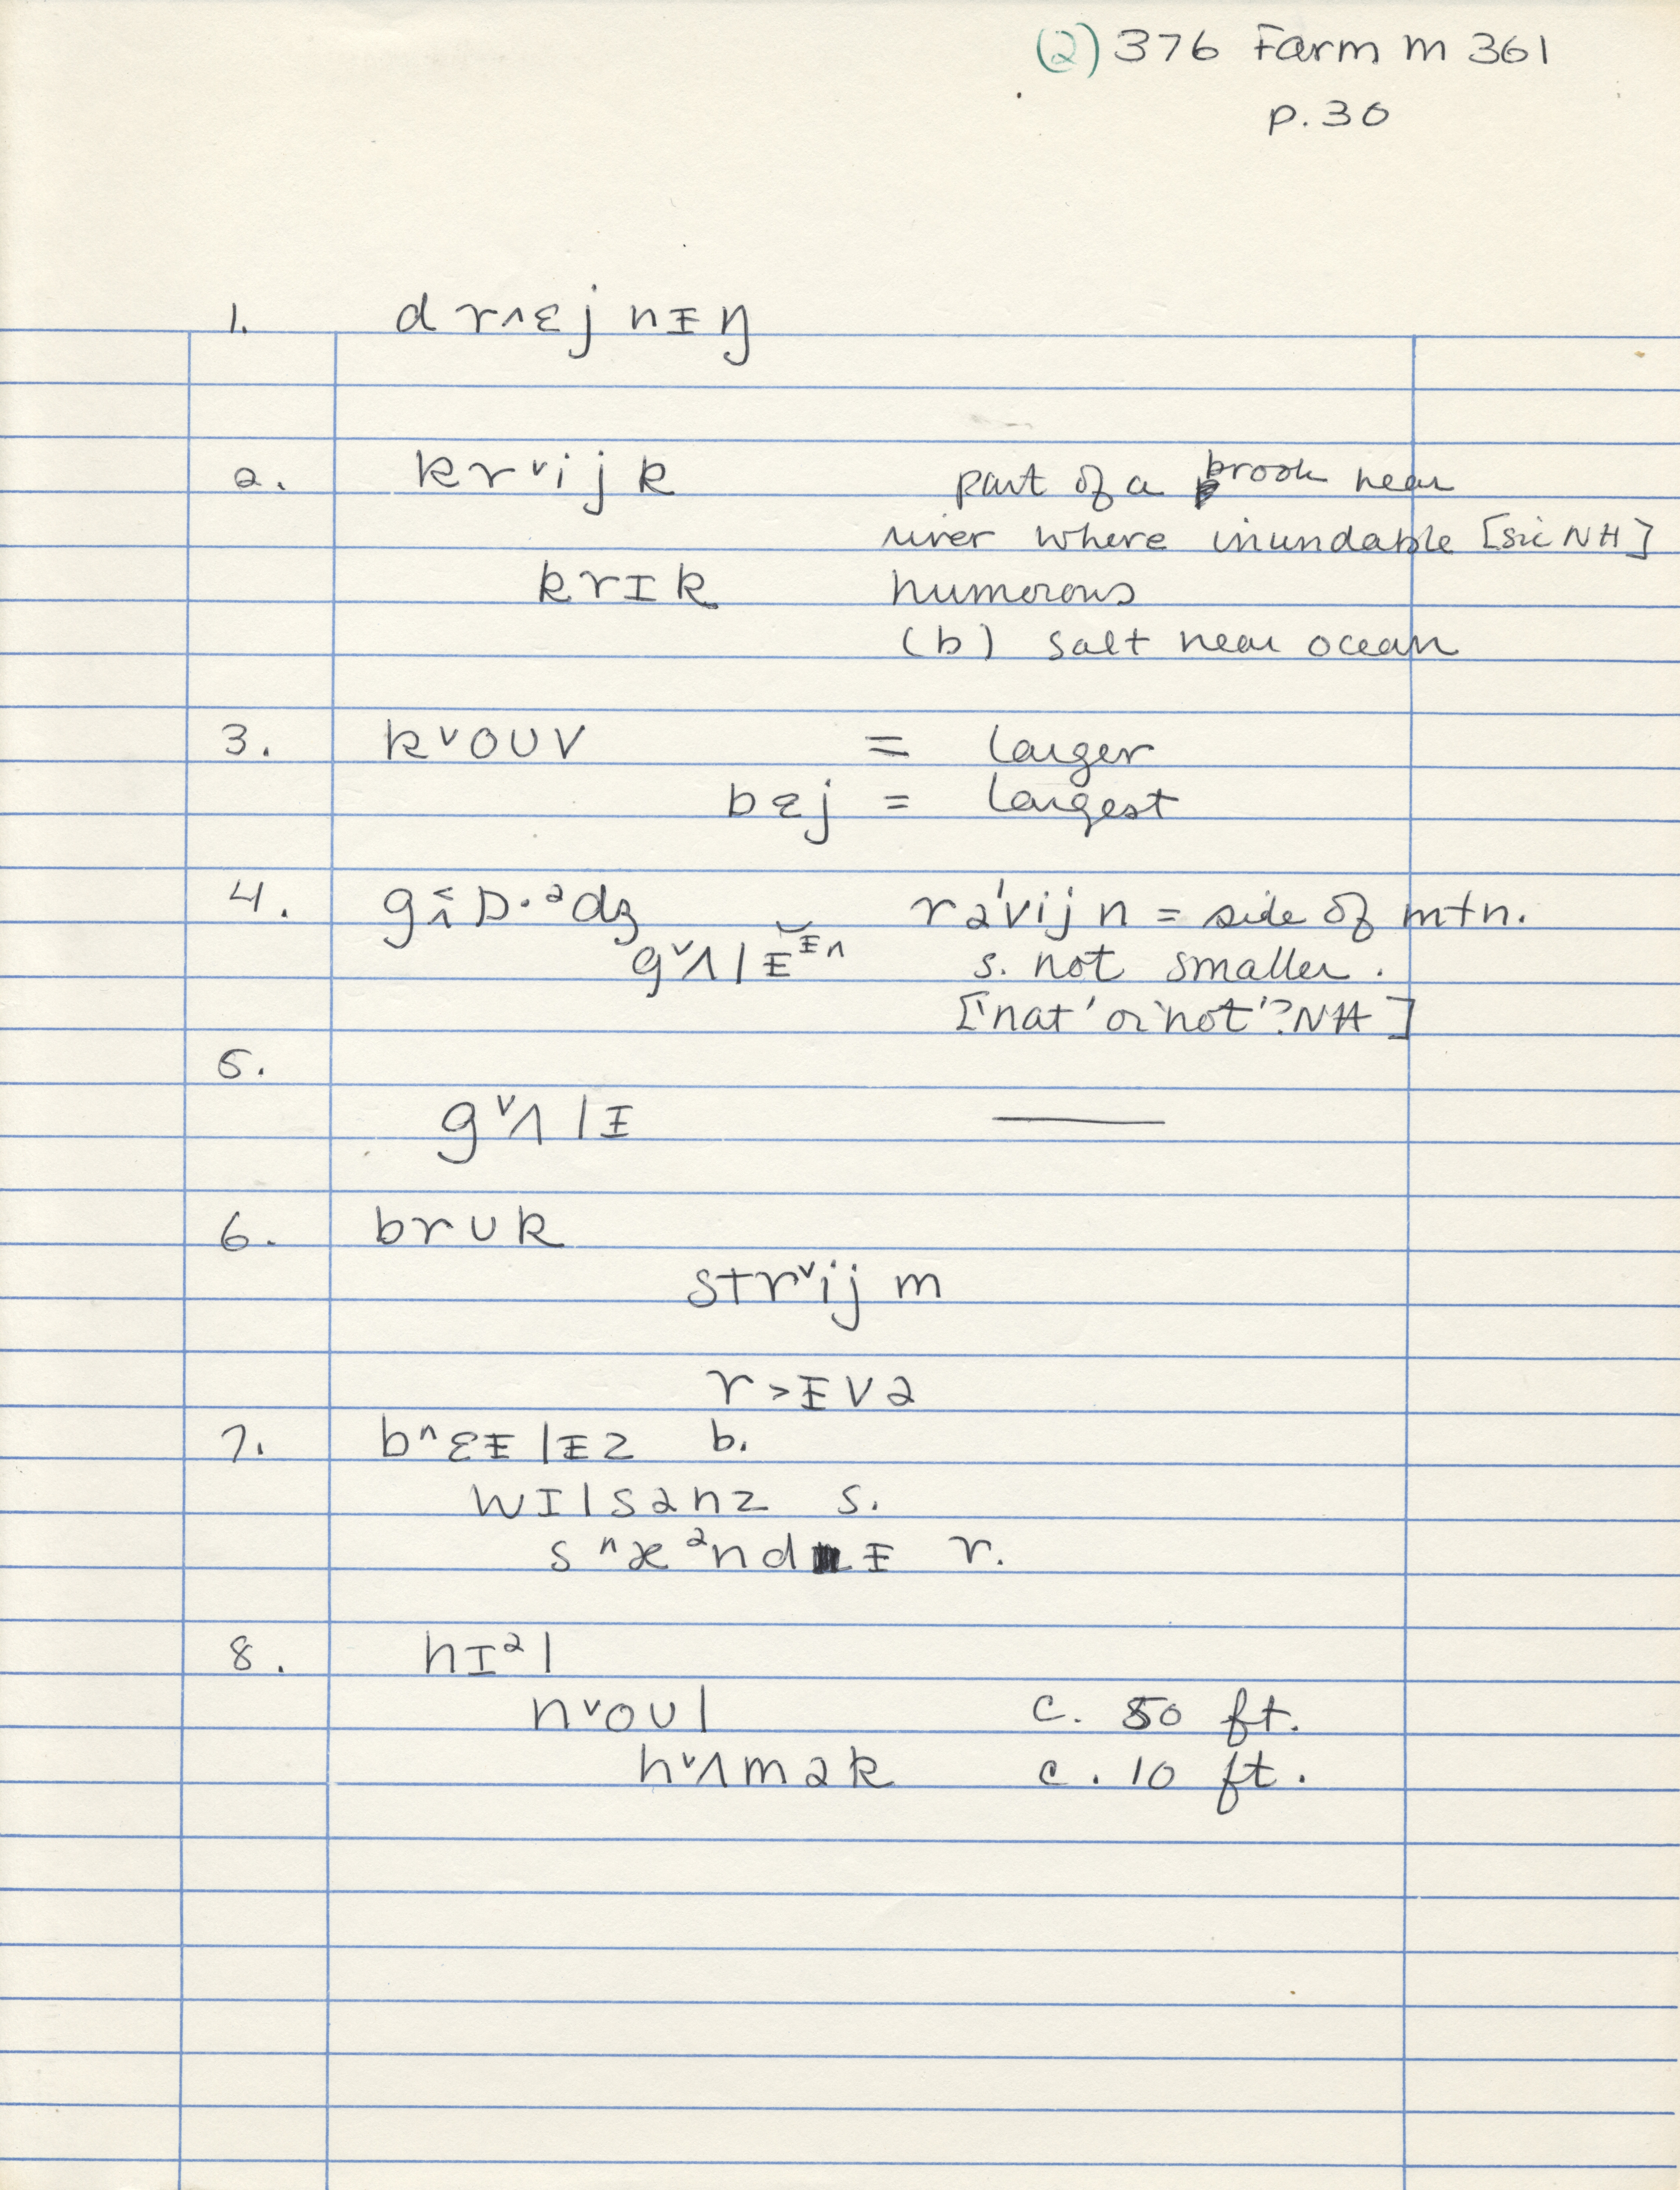 (2) 376 Farm m 361
p. 30
1. d r ʌ ɛ j n ɪ ŋ
2. k r ᵛ i j k part of a brook near
river where inundable [sic NH]
k r ɪ k numorous
(b) salt near ocean
3. k ᵛ o ʊ v = larger
b ɛ j = largest
4. g ɒ · ᵊ d ʒ r ə ' v i j n = side of mtn.
g ᵛ ʌ l ɨ s. not smaller.
['nat' or 'not'? NH]
5.
g ᵛ ʌ l ɨ ———
6. b r ʊ k
s t r ᵛ i j m
r > ɨ v ə
7. b ^ ɛ ɨ l ɨ z b.
w ɪ l s ə n z s.
s ^ æ ᵊ n d ɨ r.
8. h ɪ ᵊ l
n ᵛ o ʊ l c. 50 ft.
h ᵛ ʌ m ə k c. 10 ft.